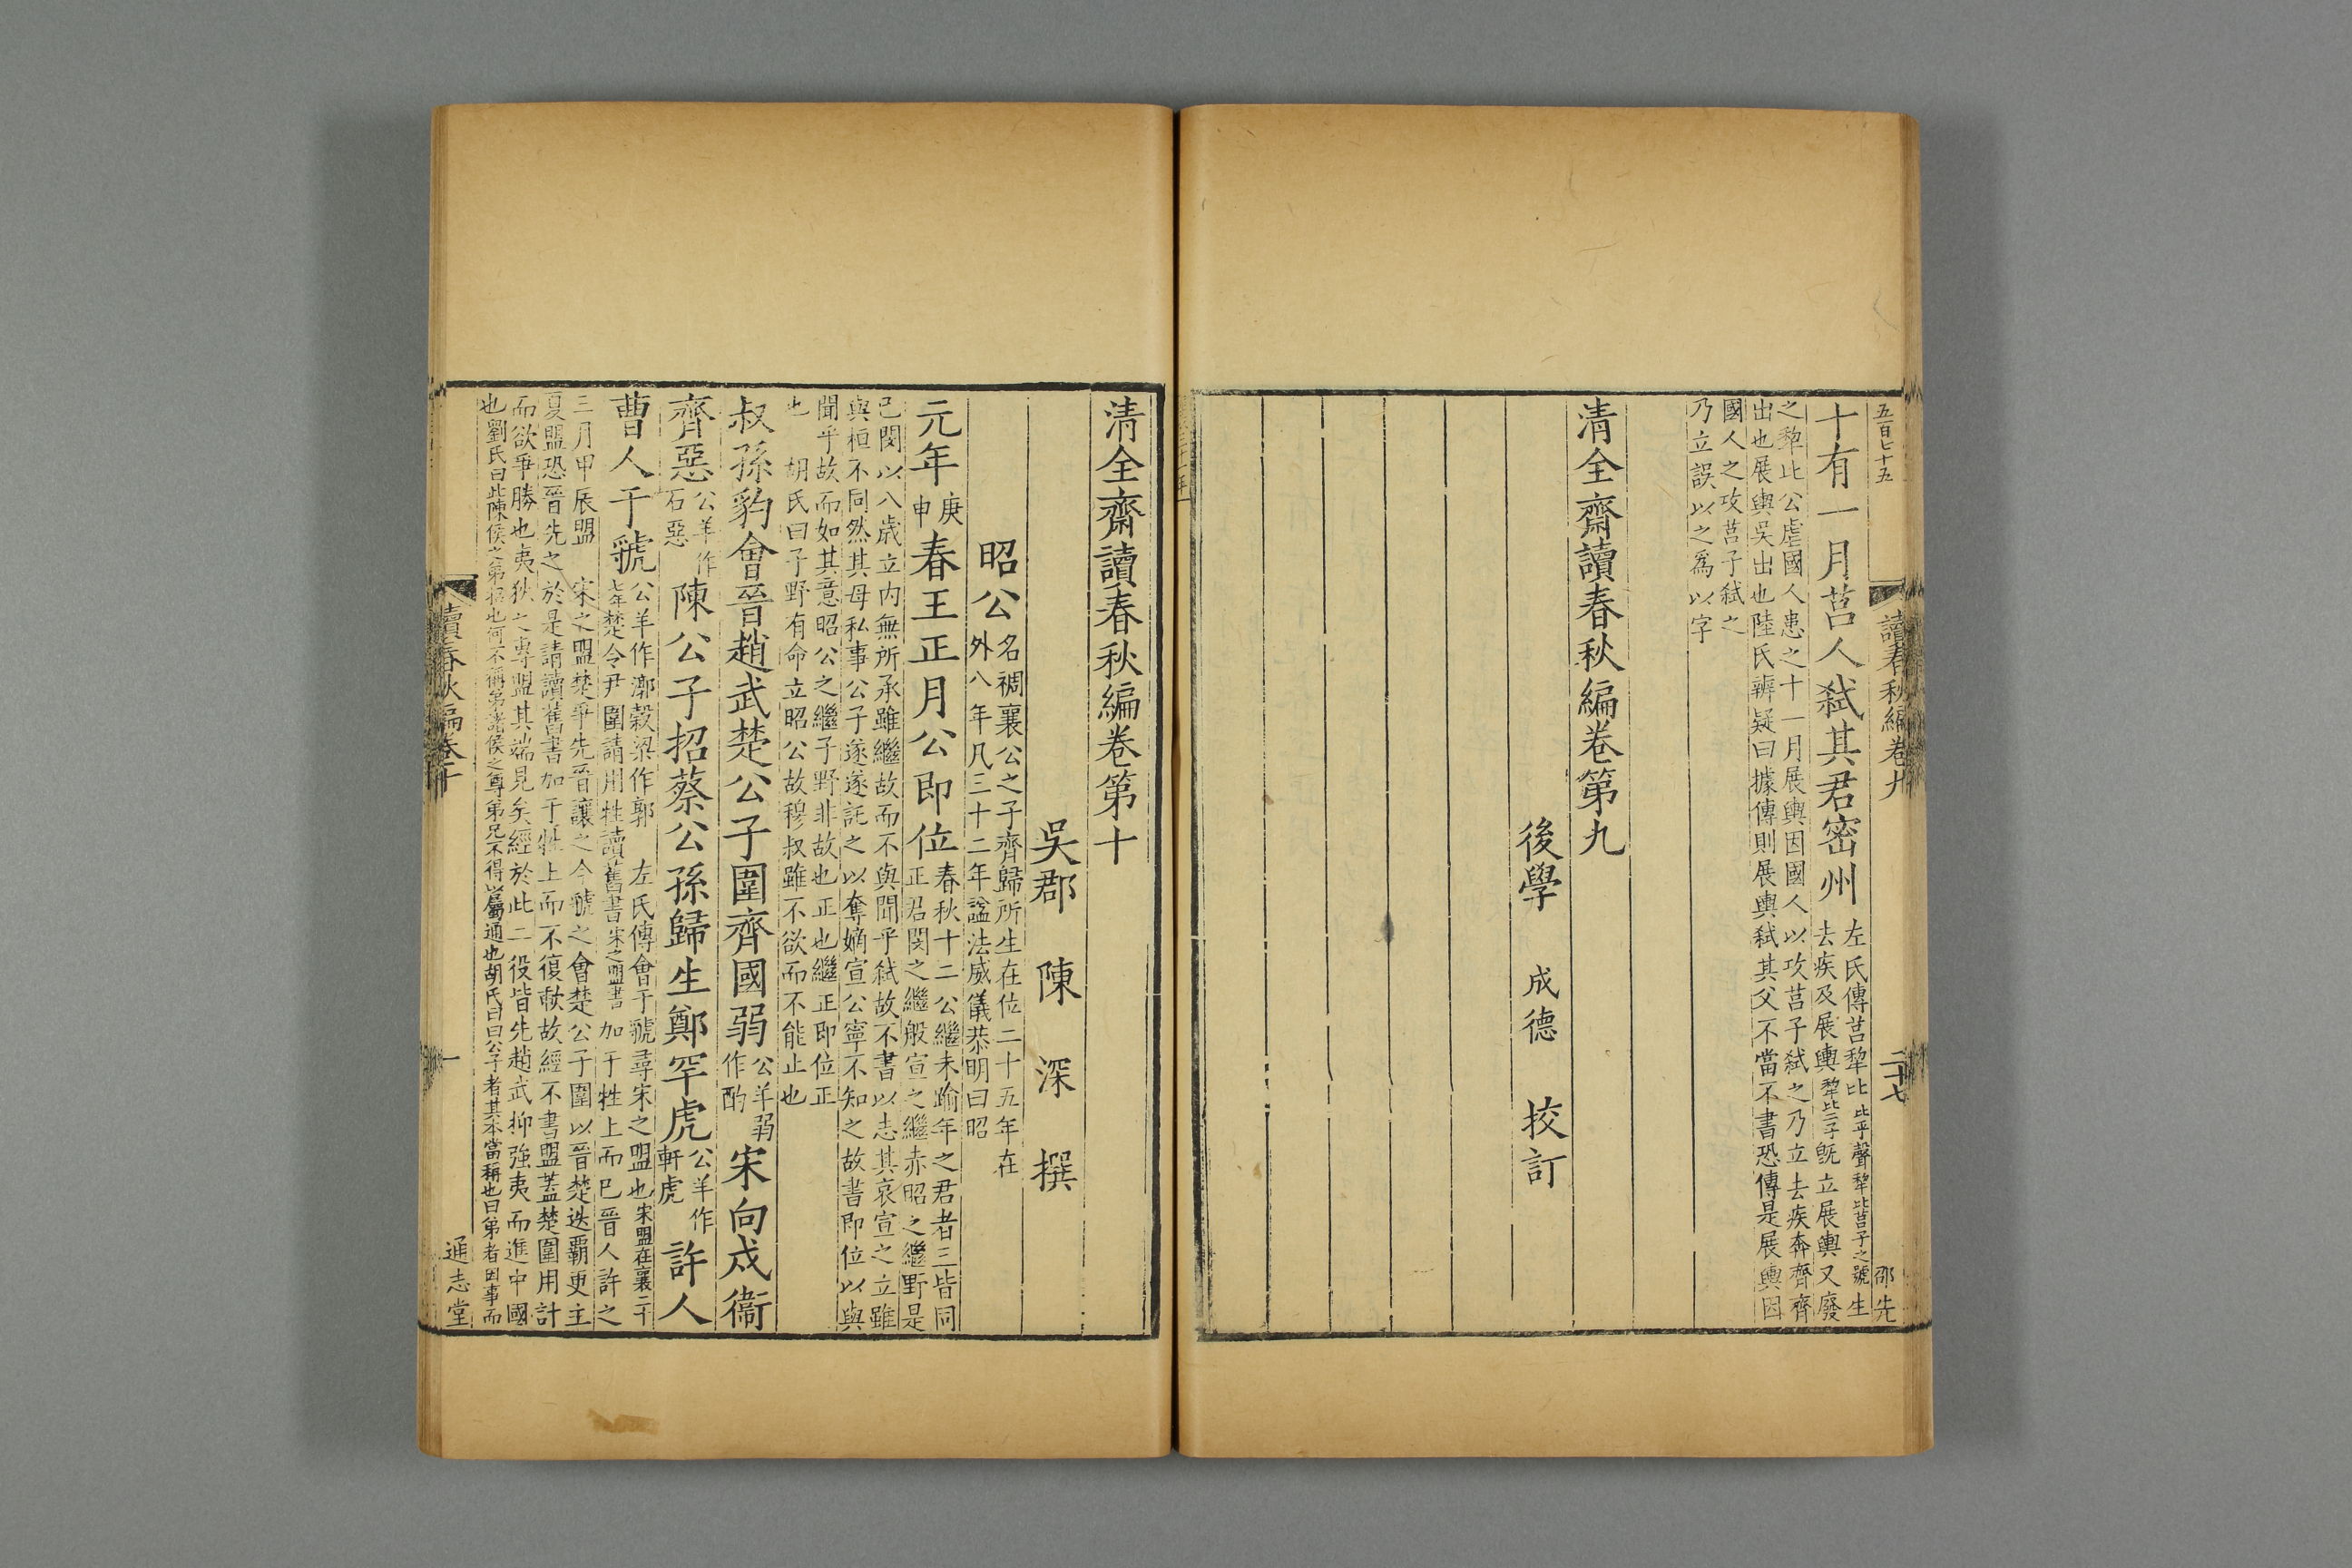 五百七十五
讀春秋編卷九
二十七
邵先
十有一月莒人弑其君密州左氏傳莒犂比比乎聲犂比莒子之號生
去疾及展輿犂比子既立展輿又廢
之犂比公虐國人患之十一月展輿因國人以攻莒子弑之乃立去疾奔齊齊
出也展輿吳出也陸氏辨疑曰據傳則展輿弑其父不當不書恐傳是展輿因
國人之攻莒子弑之
乃立誤以之為以字
清全齋讀春秋編卷第九
後學 成德 校訂
清全齋讀春秋編卷第十
吳郡 陳 深 撰
昭公名裯襄公之子齊歸所生在位二十五年在
外八年凡三十二年諡法威儀恭明曰昭
元年庚申春王正月公即位春秋十二公繼未踰年之君者三皆同
正君閔之繼般宣之繼赤昭之繼野是
已閔以八歲立内無所承雖繼故而不與聞乎弑故不書以志其哀宣之立雖
與桓不同然其母私事公子遂遂託之以奪嫡宣公寧不知之故書即位以與
聞乎故而如其意昭公之繼子野非故也正也繼正即位正
也 胡氏曰子野有命立昭公故穆叔雖不欲而不能止也
叔孫豹會晉趙武楚公子圍齊國弱公羊弱作酌宋向戌衞
齊惡公羊作石惡陳公子招蔡公孫歸生鄭罕虎公羊作軒虎許人
曹人于虢公羊作漷穀梁作郭 左氏傳會于虢尋宋之盟也宋盟在襄二十
七年楚令尹圍請用牲讀舊書宋之盟書加于牲上而已晉人許之
三月甲辰盟 宋之盟楚爭先晉讓之今虢之會楚公子圍以晉楚迭霸更主
夏盟恐晉先之於是請讀舊書加于牲上而不復歃故經不書盟蓋楚圍用計
而欲爭勝也夷狄之專盟其端見矣經於此二役皆先趙武抑強夷而進中國
也劉氏曰此陳侯之弟招也何不稱弟諸侯之尊弟兄不得以屬通也胡氏曰曰公子者其本當稱也曰弟者因事而
讀春秋編卷十
一
通志堂